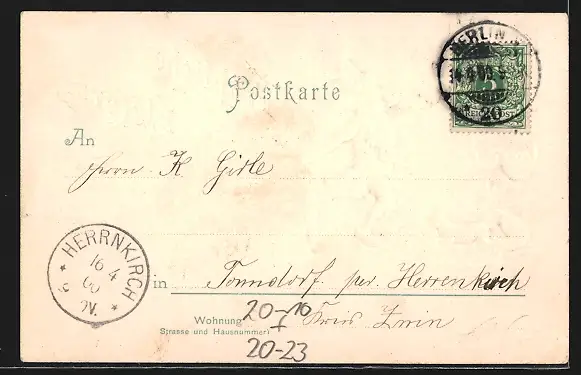 BERLIN
14.4.00
Postkarte
An
Herrn K. Girke
HERRNKIRCH
16 4
00
N.
in Tonndorf per Herrenkirch
Wohnung
(Strasse und Hausnummer)
Kreis
20-10
I
20-23